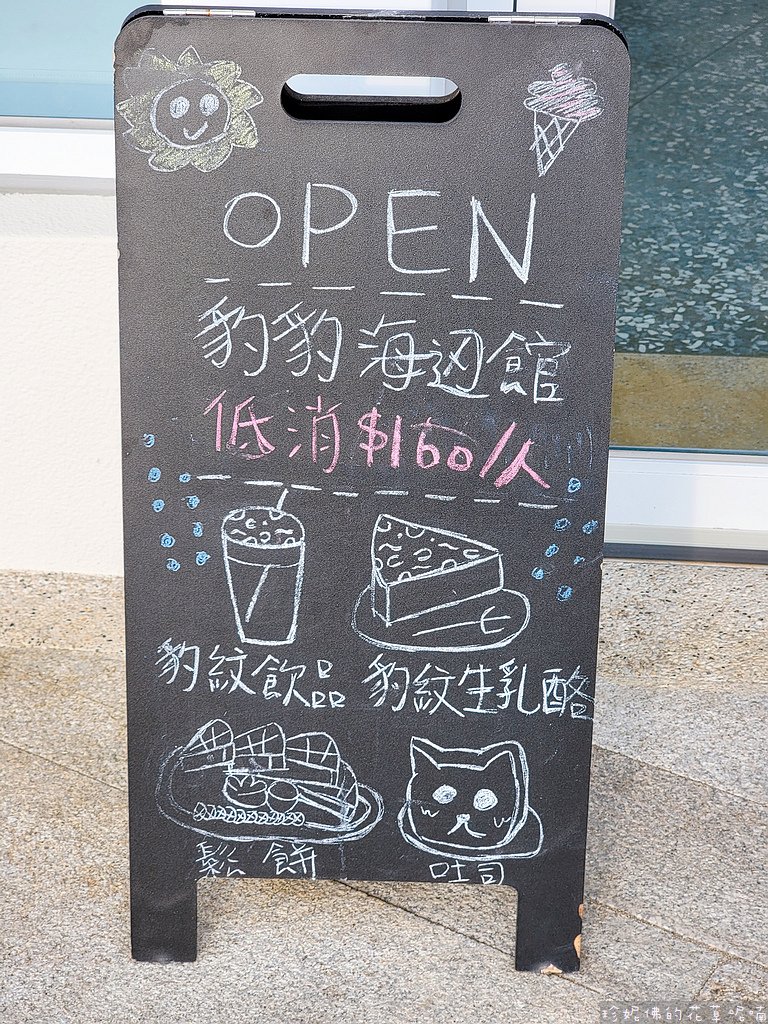 OPEN
豹豹海边館
低消$160/人
豹紋飲品 豹紋生乳酪
鬆餅 吐司
珍妮佛的花草嚐喃